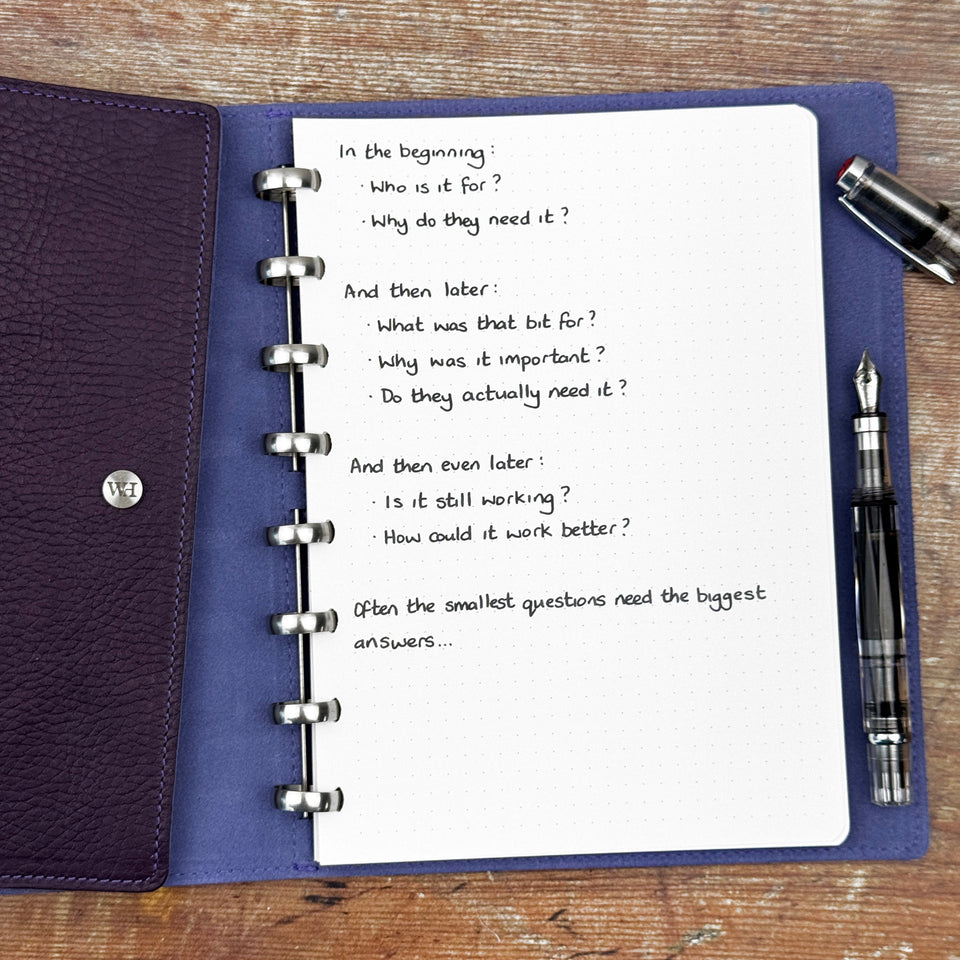 In the beginning:
· Who is it for?
· Why do they need it?
And then later:
· What was that bit for?
· Why was it important?
· Do they actually need it?
And then even later:
· Is it still working?
· How could it work better?
Often the smallest questions need the biggest
answers...
WH